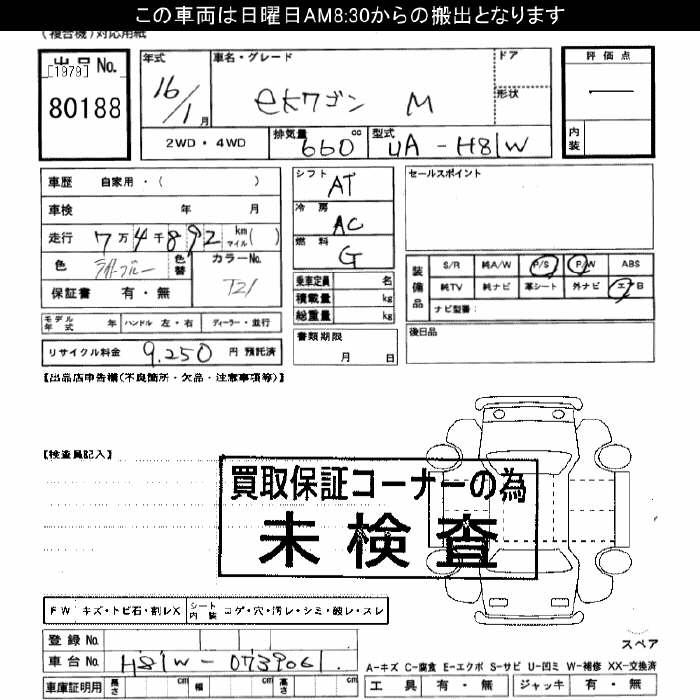 この車両は日曜日AM8:30からの搬出となります
(複合機)対応用紙
出品 No.
[1979]
80188
年式
16/1月
車名・グレード
ekワゴン M
ドア
形状
評価点
内装
2WD・4WD
排気量
660 cc
型式
UA-H81W
車歴 自家用・( )
車検 年 月
走行 7万4千892 km マイル( )
色 ライトブルー
色替
カラーNo.
T21
保証書 有・無
シフト
AT
冷房
AC
燃料
G
乗車定員 名
積載量 kg
総重量 kg
セールスポイント
装備品
S/R 純A/W P/S P/W ABS
純TV 純ナビ 革シート 外ナビ エアB
ナビ型番:
モデル年式 年 ハンドル 左・右 ディーラー・並行
書類期限
月 日
後日品
リサイクル料金 9,250 円 預託済
【出品店申告欄(不良箇所・欠品・注意事項等)】
【検査員記入】
買取保証コーナーの為
未検査
FW キズ・トビ石・割レX シート内装 コゲ・穴・汚レ・シミ・破レ・スレ
登録No.
車台No. H81W-0739061
スペア
A-キズ C-腐食 E-エクボ S-サビ U-凹ミ W-補修 XX-交換済
車庫証明用 長さ cm 幅 cm 高さ cm
工具 有・無 ジャッキ 有・無